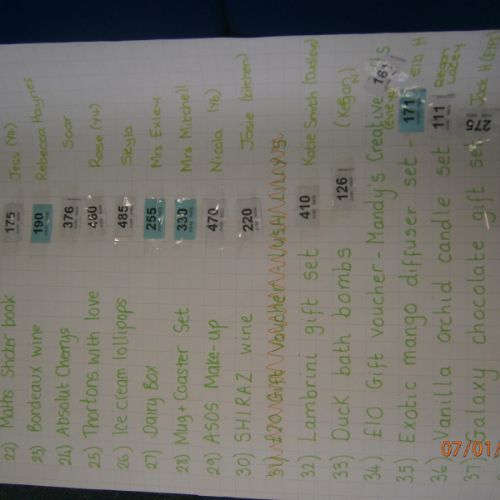 22) Maths Sticker book 175 Jess (Yr)
23) Bordeaux wine 190 Rebecca Haynes
24) Absolut Cherrys 376 Soar
25) Thortons with love 460 Rose (Y4)
26) Ice cream lollipops 485 Skyla
27) Dairy Box 255 Mrs Exley
28) Mug + Coaster Set 330 Mrs Mitchell
29) ASOS Make-up 470 Nicola (Y6)
30) SHIRAZ wine 220 Josie (kitchen)
31) £20 Gift Voucher
32) Lambrini gift set 410 Katie Smith
33) Duck bath bombs 126 (Kegan)
34) £10 Gift Voucher - Mandy's Creative 161
35) Exotic mango diffuser set - 171 H
36) Vanilla orchid candle set 111
37) Galaxy chocolate gift set 275 Jack H
07/01/